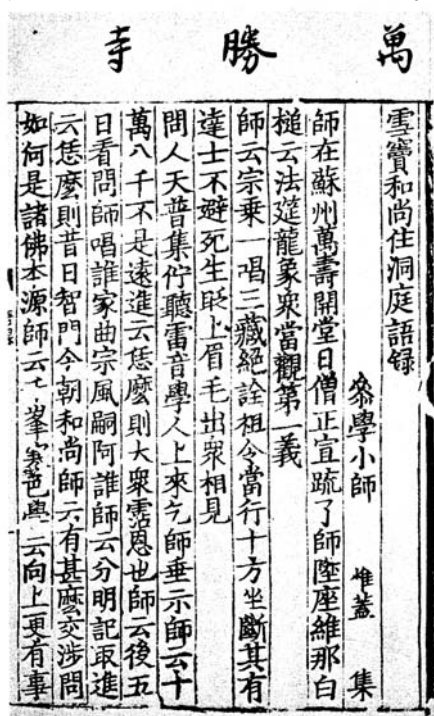 萬勝寺
雪竇和尚住洞庭語録
叅學小師 惟蓋 集
師在蘇州萬壽開堂日僧正宣疏了師陞座維那白
槌云法筵龍象衆當觀第一義
師云宗乘一唱三藏絶詮祖令當行十方坐斷其有
達士不避死生眨上眉毛出衆相見
問人天普集佇聽雷音學人上來乞師垂示師云十
萬八千不是遠進云恁麽則大衆霑恩也師云後五
日看問師唱誰家曲宗風嗣阿誰師云分明記取進
云恁麽則昔日智門今朝和尚師云有甚麽交涉問
如何是諸佛本源師云千峯寒色學云向上更有事